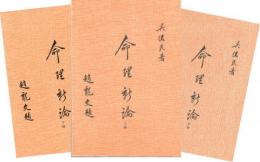 命理新論
趙龍文題
吳俊民著
命理新論
趙龍文題
吳俊民著
命理新論